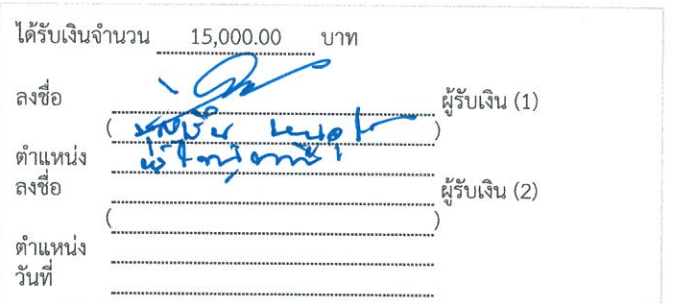 ได้รับเงินจำนวน 15,000.00 บาท
ลงชื่อ ผู้รับเงิน (1)
( )
ตำแหน่ง
ลงชื่อ ผู้รับเงิน (2)
( )
ตำแหน่ง
วันที่